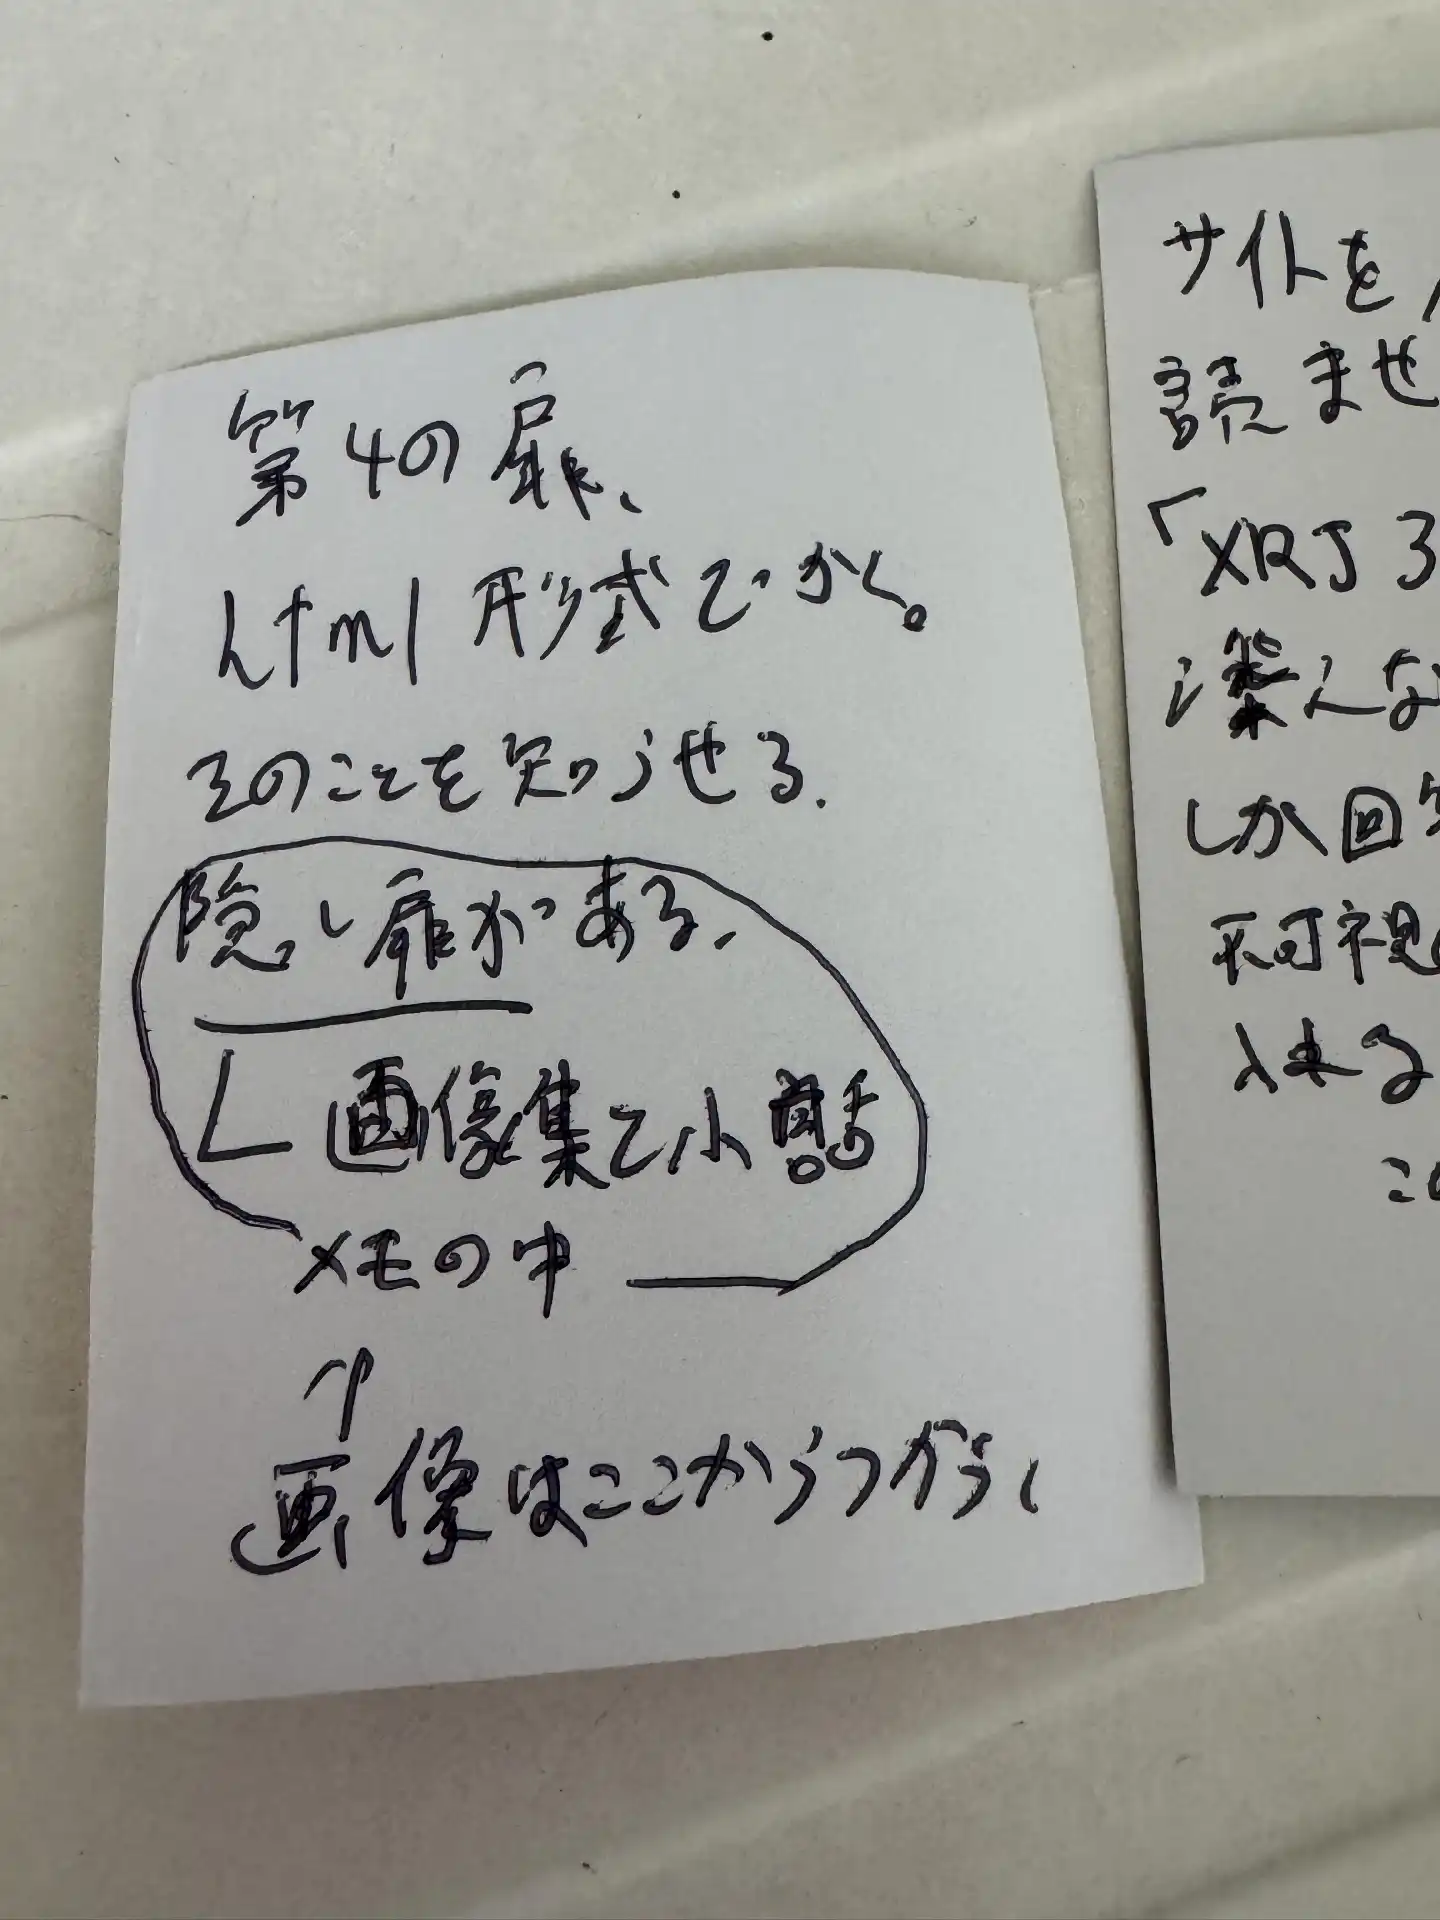 第4の扉、
html形式でかく。
そのことを知らせる.
隠し扉がある.
画像集と小話
メモの中
画像はここからつかう、
サイトを
読ませ
「XRJ3
しか回
不可視
入れる